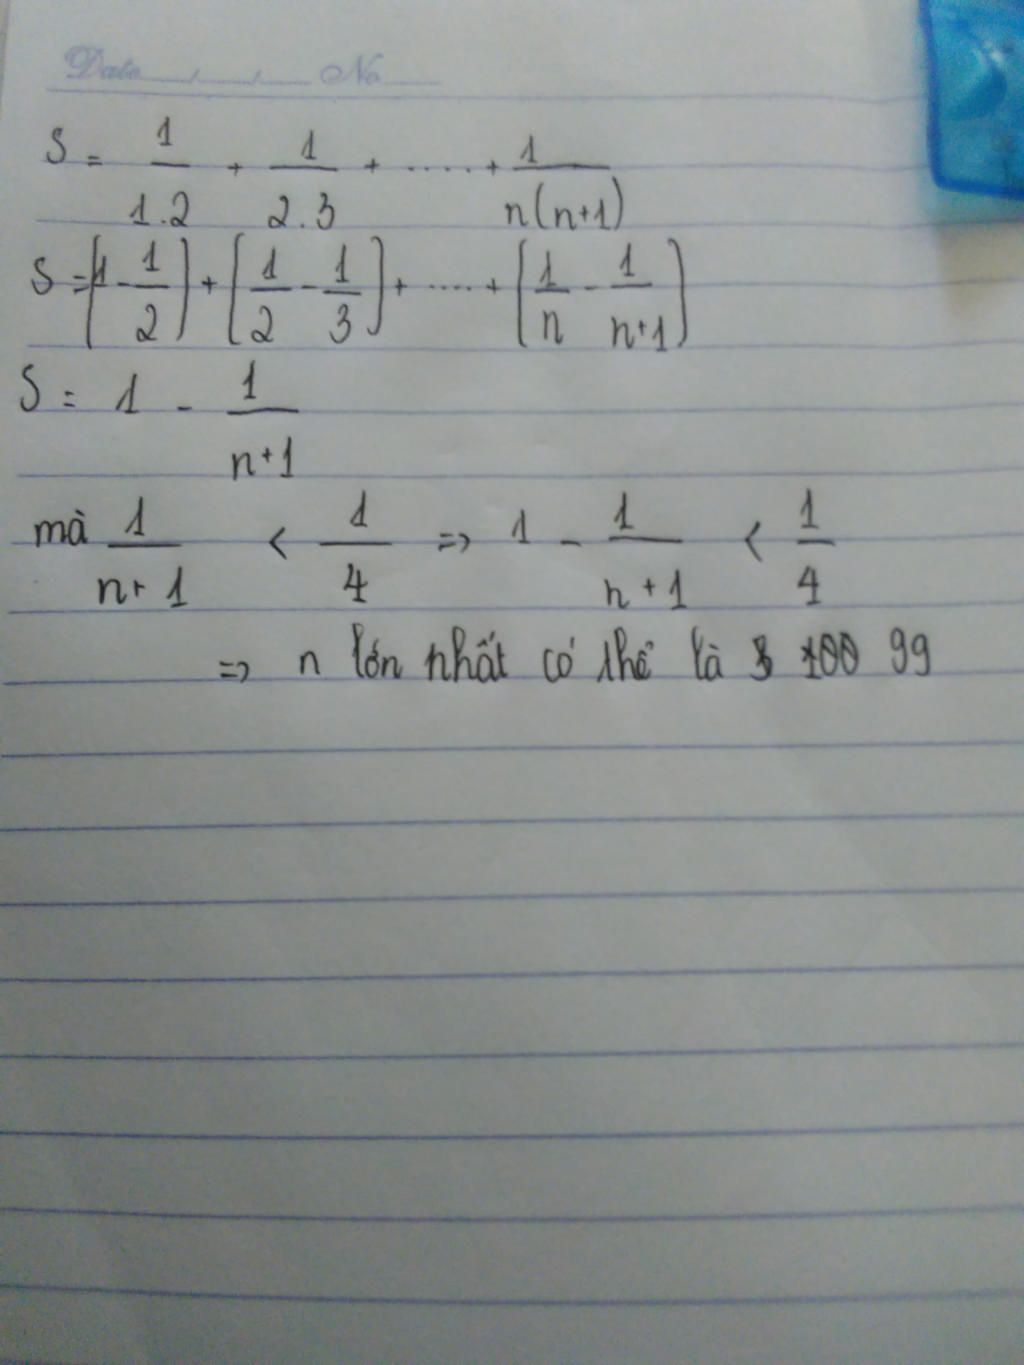 Date / / No
S = 1/1.2 + 1/2.3 + ..... + 1/n(n+1)
S = (1 - 1/2) + (1/2 - 1/3) + ..... + (1/n - 1/n+1)
S = 1 - 1/n+1
mà 1/n+1 < 1/4 => 1 - 1/n+1 < 1/4
=> n lớn nhất có thể là 99